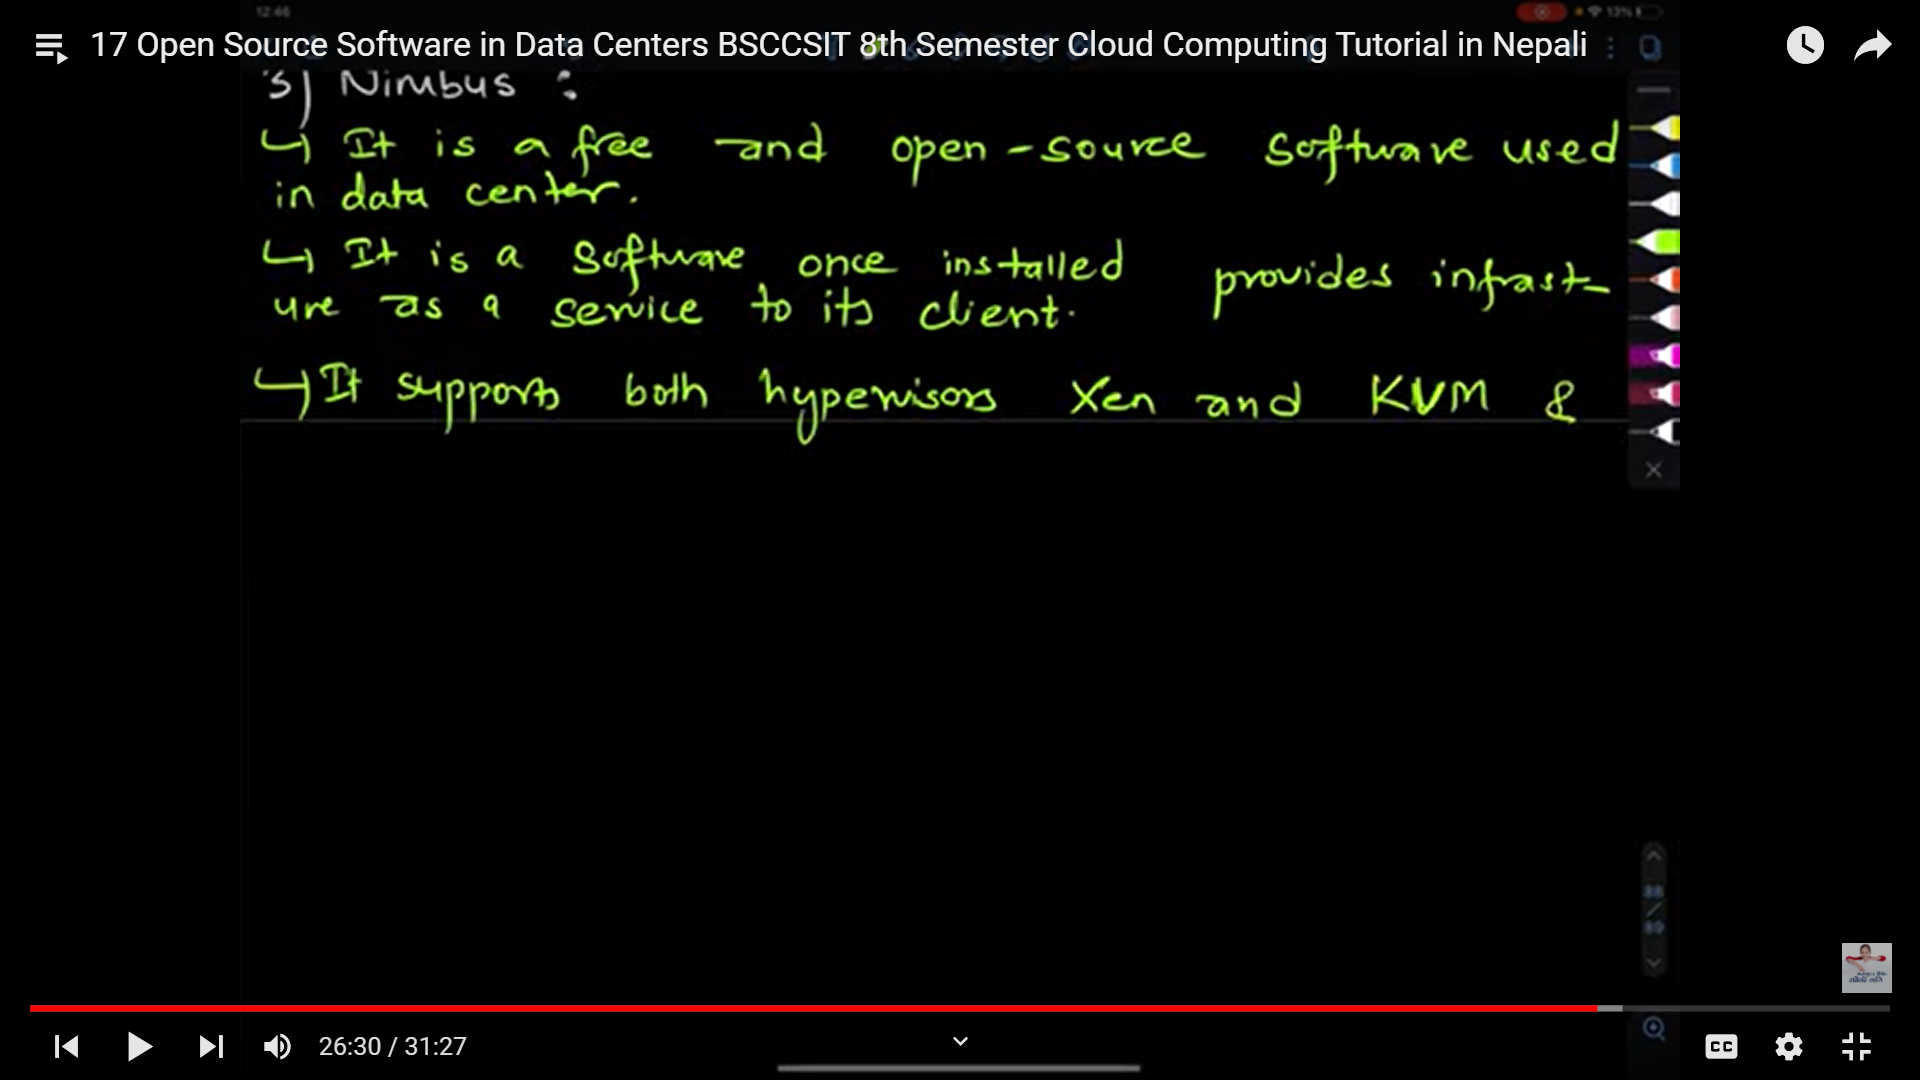 12:46
13%
17 Open Source Software in Data Centers BSCCSIT 8th Semester Cloud Computing Tutorial in Nepali
3) Nimbus :
↳ It is a free and open-source software used
in data center.
↳ It is a software once installed provides infrast-
ure as a service to its client.
↳ It supports both hypervisors Xen and KVM &
88
/
89
26:30 / 31:27
CC